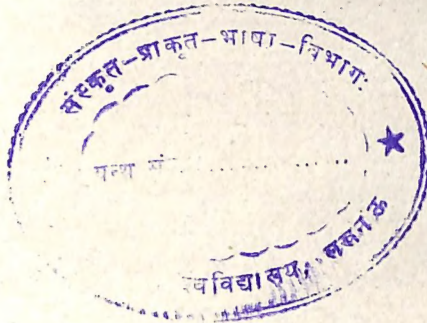 संस्कृत-प्राकृत-भाषा-विभागः
ग्रन्थ सं..................
श्वविद्यालय, लखनऊ